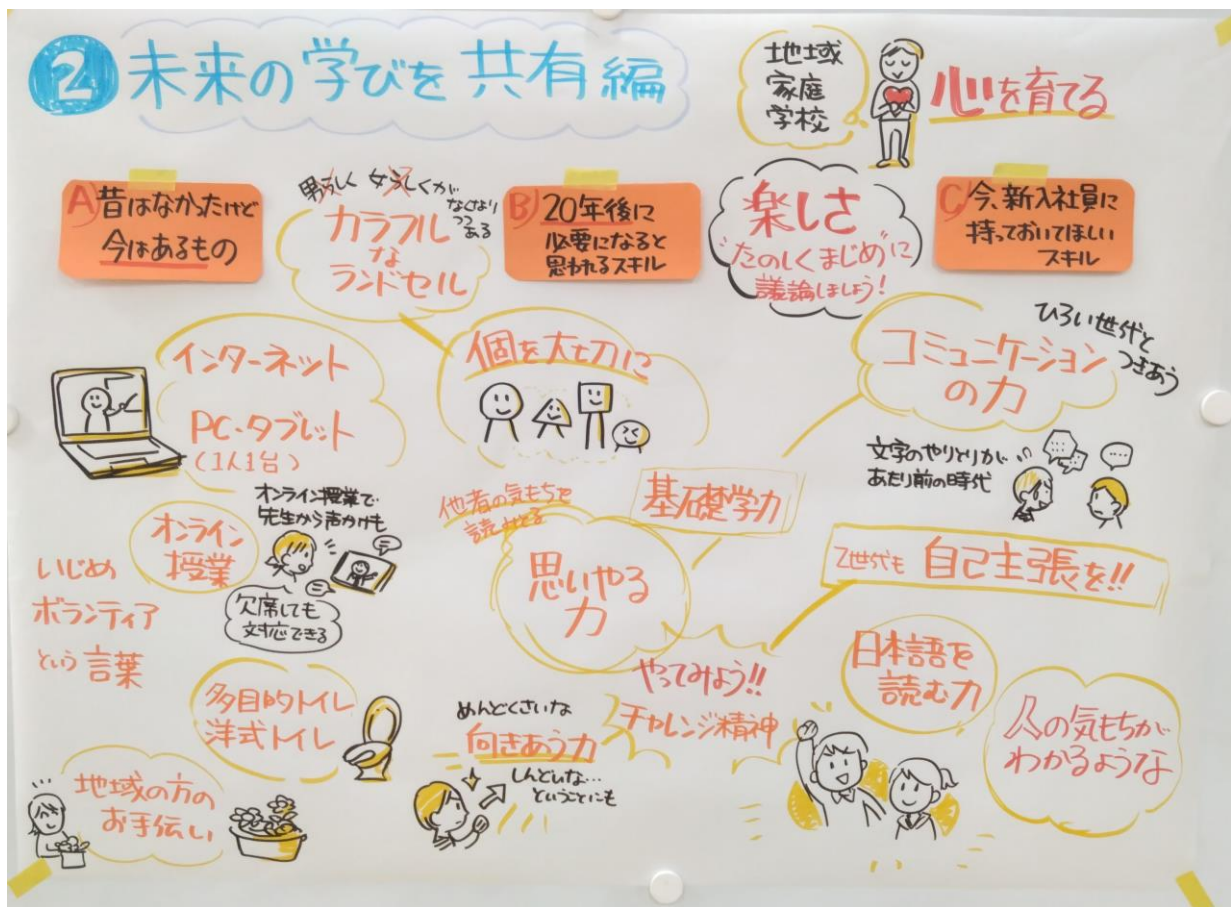 2 未来の学びを共有編
地域
家庭
学校
心を育てる
A) 昔はなかったけど
今はあるもの
男らしく 女らしくが
なくなり
つつ
ある
カラフル
な
ランドセル
B) 20年後に
必要になると
思われるスキル
楽しさ
"たのしくまじめ"に
議論しましょう!
C) 今、新入社員に
持っておいてほしい
スキル
インターネット
PC・タブレット
(1人1台)
個を大切に
コミュニケーション
の力
ひろい世代と
つきあう
文字のやりとりが
あたり前の時代
オンライン授業で
先生から声かけも
オンライン
授業
欠席しても
対応できる
いじめ
ボランティア
という言葉
他者の気もちを
読みとる
基礎学力
思いやる
力
Z世代も 自己主張を!!
多目的トイレ
洋式トイレ
地域の方の
お手伝い
めんどくさいな
向きあう力
しんどいな…
ということにも
やってみよう!!
チャレンジ精神
日本語を
読む力
人の気もちが
わかるような